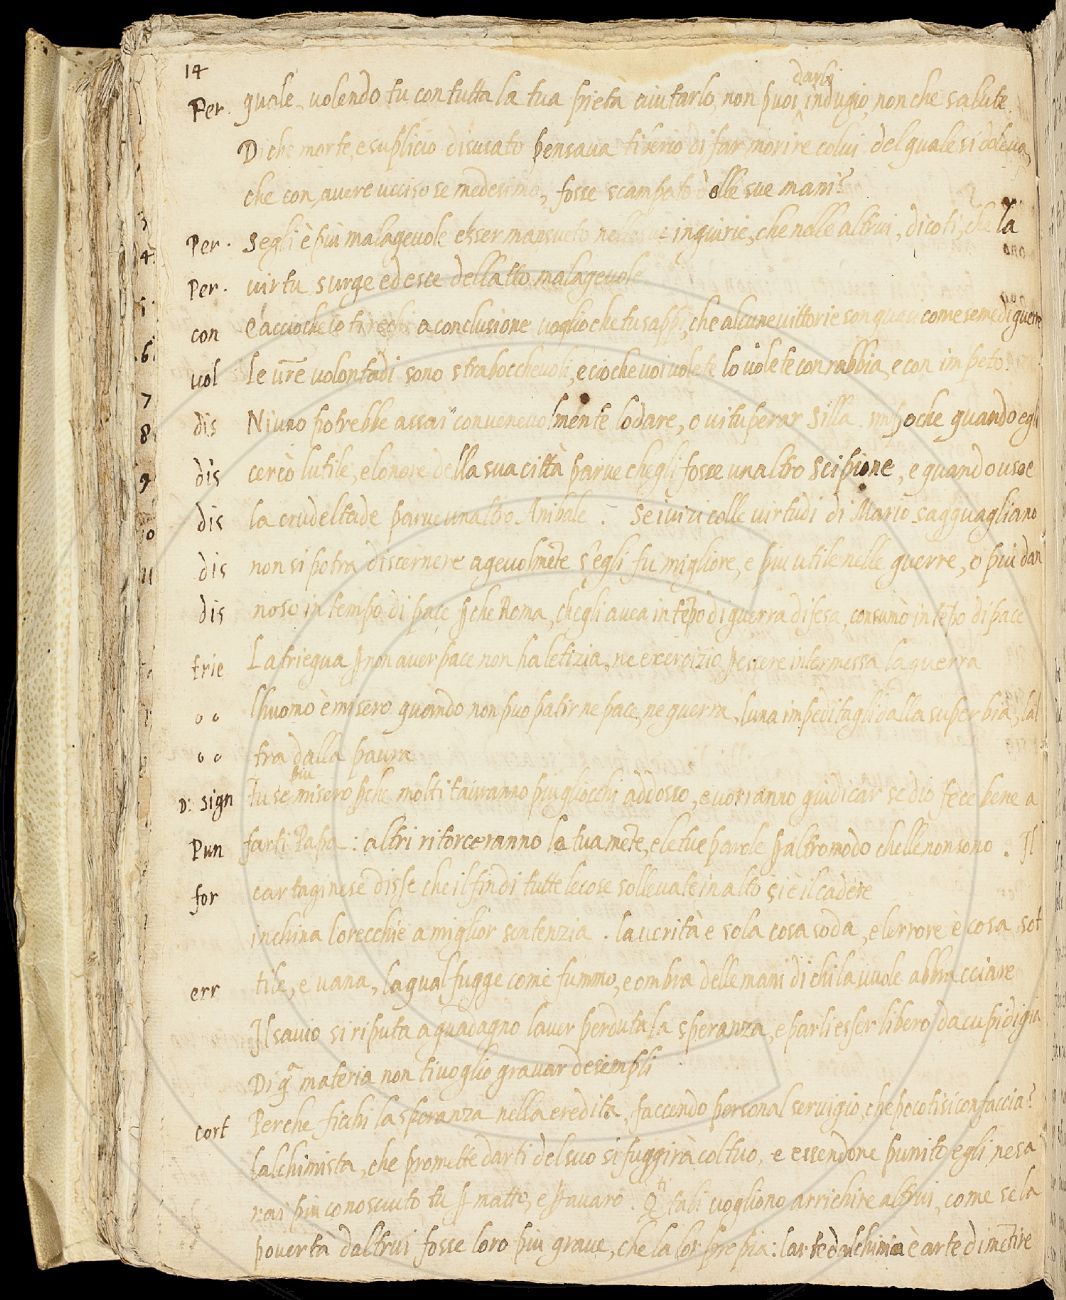 14
darli
Per. quale volendo tu con tutta la tua pietà aiutarlo, non puoi indugio, non che salute.
Di che morte, e suplicio disusato pensava tiberio di far morire colui del quale si doleva,
che con avere ucciso se medesimo, fosse scampato dalle sue mani?
3
Per. Segli è piu malagevole esser mansueto nelle ingiurie, che nelle altrui, dicoti, che la
4
Per. virtu surge ed esce dellatto malagevole
5
con E acciochè io ti rechi a conclusione voglio che tu sappi, che alcune vittorie son quasi come seme di guerre
6
vol le vr̃e volontadi sono strabocchevoli, e ciò che voi volete lo volete con rabbia, e con impeto.
7
8
dis Niuno potrebbe assai convenevolmente lodare, o vituperar Silla. impoche quando egli
9
dis cercò lutile, e lonore della sua città parve chegli fosse un altro Scipione, e quando usò e
dis la crudeltade parve un altro Anibale. Se i vizi colle virtudi di Mario sagguagliano
10
11
dis non si potra discernere agevolmẽte s'egli fu migliore, e piu utile nelle guerre, o piu dan
dis noso in tempo di pace pche Roma, chegli avea in tẽpo di guerra difesa, consumò in tẽpo di pace
trie La triegua p non aver pace non ha letizia, ne exercizio p essere intermessa la guerra
o o lhuomo è misero quando non puo patir ne pace, ne guerra, luna impeditagli dalla superbia, lal
o o tra dalla paura
piu
D: sign Tu se misero pche molti tauranno piu gliocchi addosso, e vorranno giudicar se dio fece bene a
Pun farti Papa: altri ritorceranno la tua mẽte, e le tue parole p altro modo chelle non sono. Il
for cartaginese disse che il fin di tutte le cose sollevate in alto si è il cadere
inchina lorecchie a miglior sentenzia. la verità è sola cosa soda, e lerrore è cosa sot
err tile, e vana, la qual fugge come fummo, e ombra delle mani di chi la vuole abbracciare
Il savio si riputa a guadagno laver perduta la speranza, e parli esser libero da cupidigia
Di q̃ materia non ti voglio gravar desempli
Perche ficchi la speranza nella eredità, faccendo personal servigio, che poco ti si confaccia?
cort lalchimista, che promette darti del suo si fuggirà col tuo, e essendone punito egli, ne sa
rai piu conosciuto tu p matto, e p avaro. tali vogliono arrichire altrui, come se la
povertà daltrui fosse loro piu grave, che la lor propia: larte dalchimia è arte di mẽtire